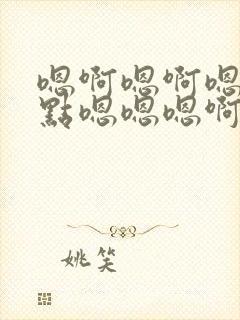 嗯啊嗯啊嗯
點嗯嗯嗯啊
姚笑